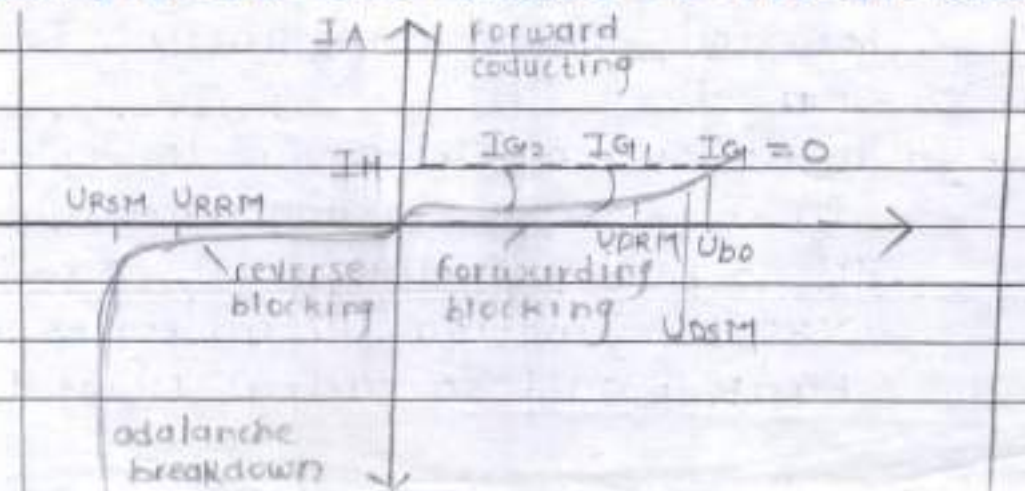 IA
Forward
coducting
IH
IG2 IG1 IG = 0
URSM URRM
UDRM Ubo
reverse
blocking
forwarding
blocking
UDSM
adalanche
breakdown